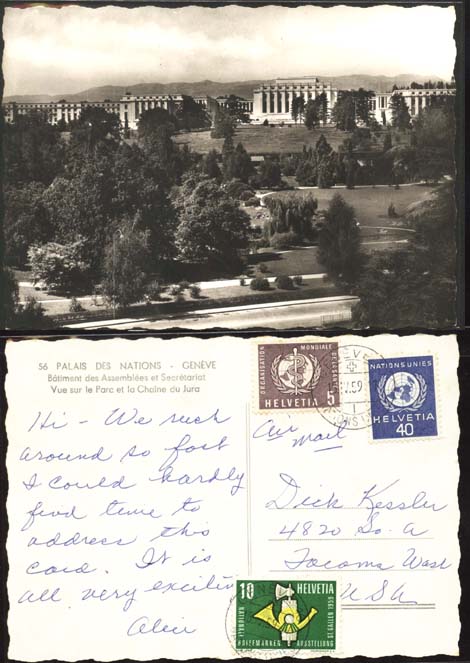 56 PALAIS DES NATIONS - GENÈVE
Bâtiment des Assemblées et Secrétariat
Vue sur le Parc et la Chaîne du Jura
Hi - We rush
around so fast
I could hardly
find time to
address this
card. It is
all very exciting
Alice
ORGANISATION MONDIALE
DE LA SANTÉ
HELVETIA 5
GENÈVE
59
NATIONS UNIES
HELVETIA
40
Air mail
Dick Kessler
4820 So. A
Tacoma Wash
USA
10 HELVETIA
NATIONALE
BRIEFMARKEN AUSSTELLUNG
ST. GALLEN 1959